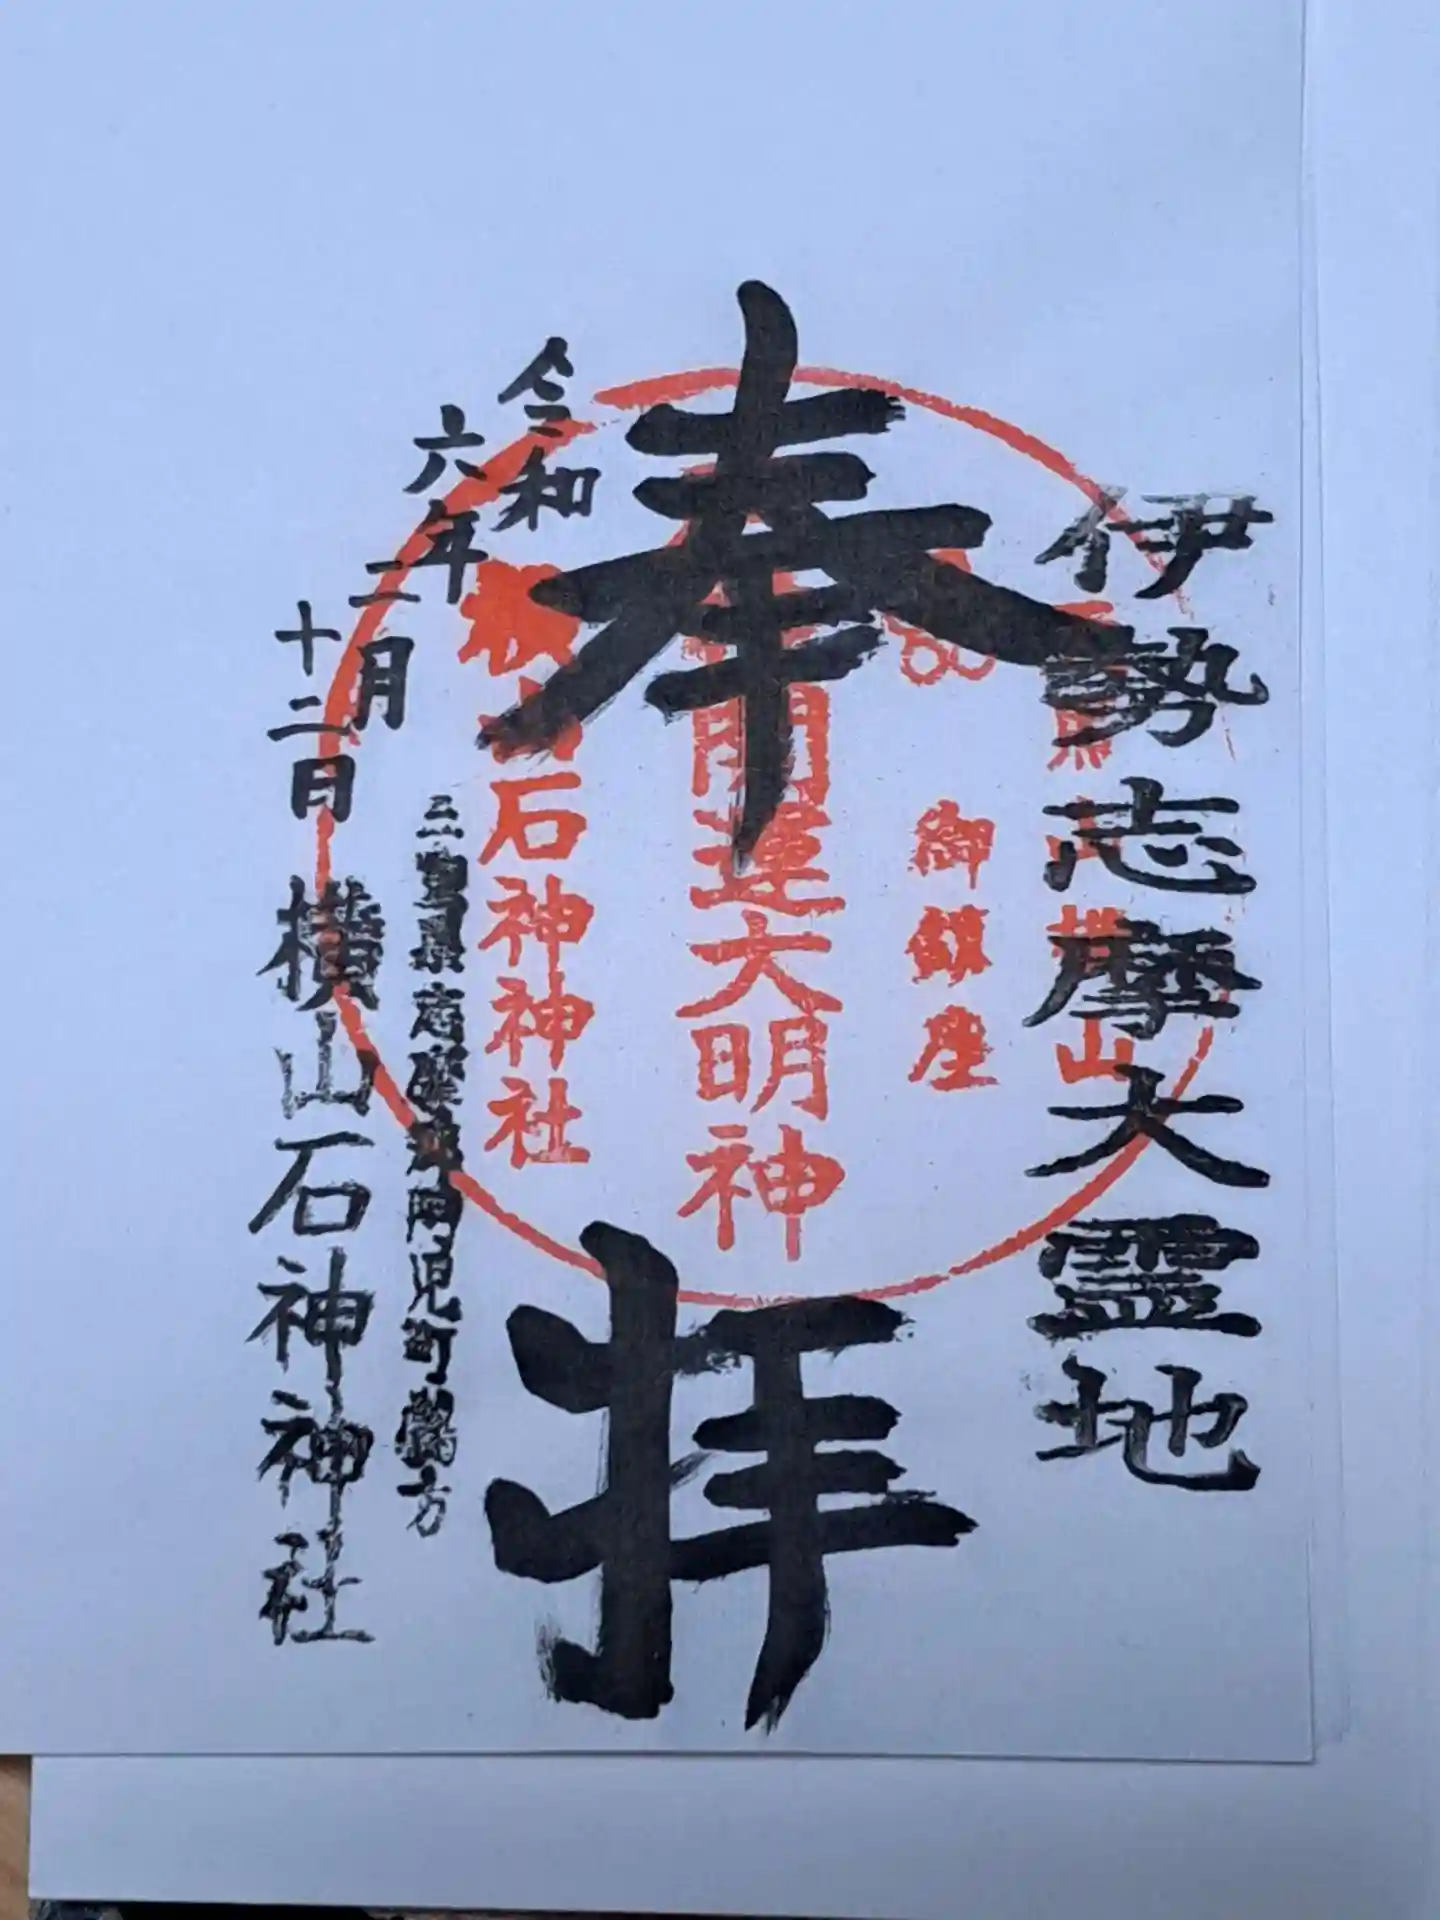 伊勢志摩大霊地
御鎮座
奉拝
開運大明神
横山石神神社
令和
六年
二月
十二日
三重県志摩市阿児町鵜方
横山石神神社